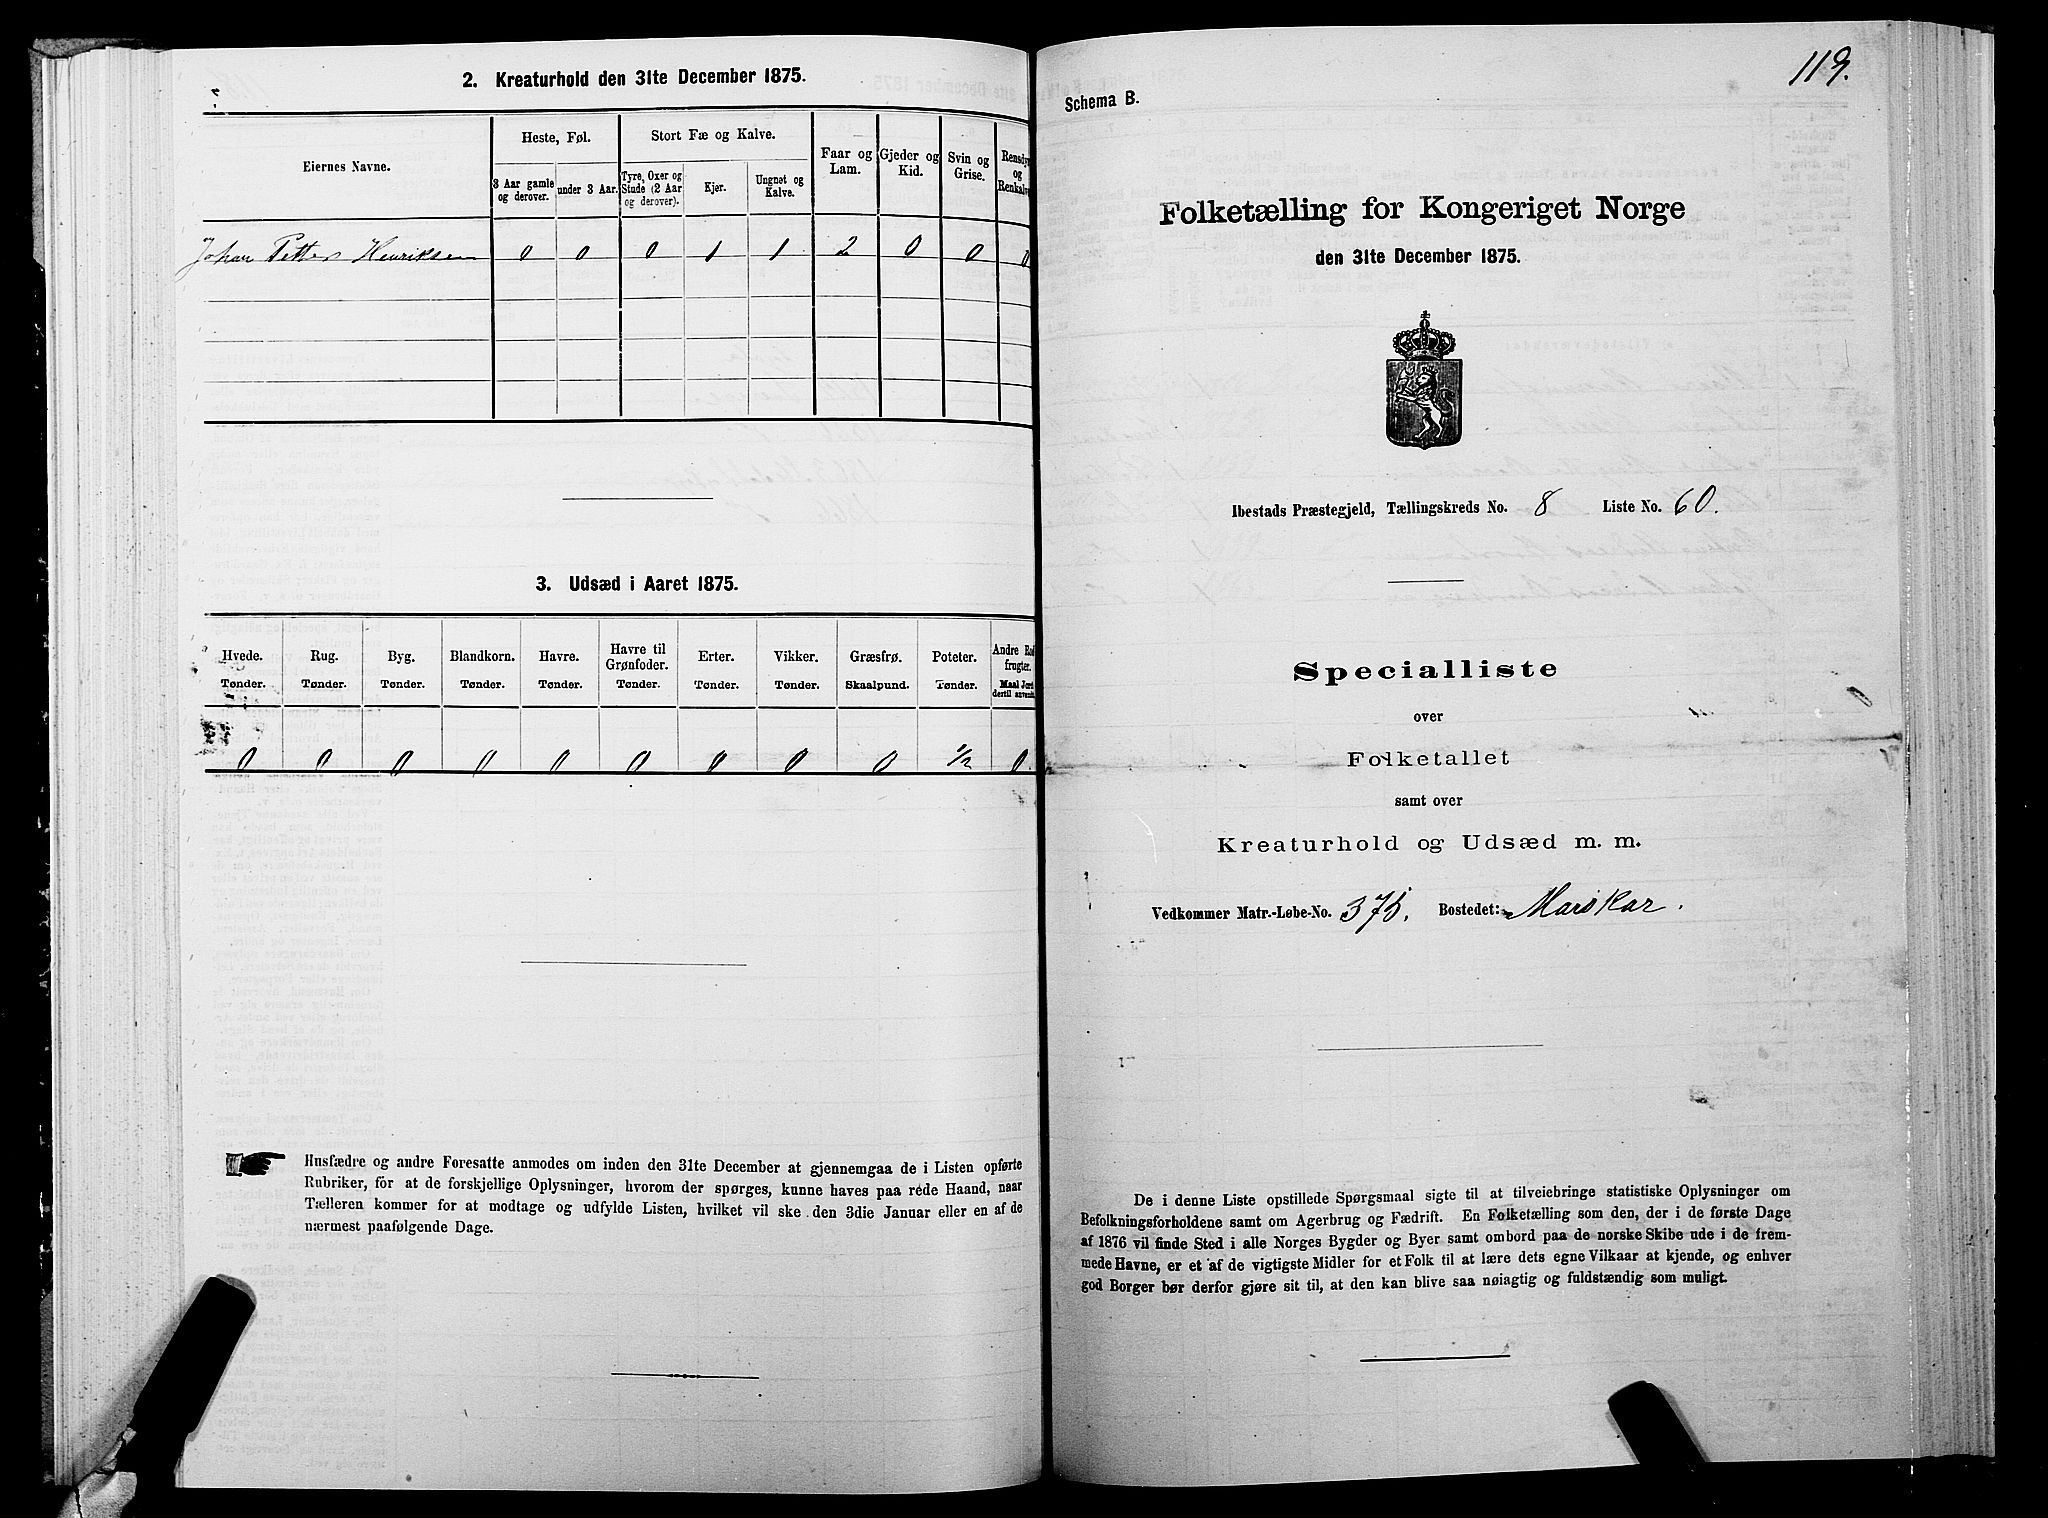 2. Kreaturhold den 31te December 1875.
Eiernes Navne.
Heste, Føl.
Stort Fæ og Kalve.
Faar og Lam.
Gjeder og Kid.
Svin og Grise.
Rensdyr og Renkalve
3 Aar gamle og derover.
under 3 Aar.
Tyre, Oxer og Stude (2 Aar og derover).
Kjør.
Ungnøt og Kalve.
Johan Petter Henriksen 0 0 0 1 1 2 0 0 0
3. Udsæd i Aaret 1875.
Hvede. Rug. Byg. Blandkorn. Havre. Havre til Grønfoder. Erter. Vikker. Græsfrø. Poteter. Andre Rodfrugter.
Tønder. Tønder. Tønder. Tønder. Tønder. Tønder. Tønder. Tønder. Skaalpund. Tønder. Maal Jord dertil anvendt
0 0 0 0 0 0 0 0 0 1/2 0.
Husfædre og andre Foresatte anmodes om inden den 31te December at gjennemgaa de i Listen opførte
Rubriker, for at de forskjellige Oplysninger, hvorom der spørges, kunne haves paa rede Haand, naar
Tælleren kommer for at modtage og udfylde Listen, hvilket vil ske den 3die Januar eller en af de
nærmest paafølgende Dage.
119.
Schema B.
Folketælling for Kongeriget Norge
den 31te December 1875.
Ibestads Præstegjeld, Tællingskreds No. 8 Liste No. 60.
Specialliste
over
Folketallet
samt over
Kreaturhold og Udsæd m. m.
Vedkommer Matr.-Løbe-No. 37b. Bostedet: Marskar.
De i denne Liste opstillede Spørgsmaal sigte til at tilveiebringe statistiske Oplysninger om
Befolkningsforholdene samt om Agerbrug og Fædrift. En Folketælling som den, der i de første Dage
af 1876 vil finde Sted i alle Norges Bygder og Byer samt ombord paa de norske Skibe ude i de frem-
mede Havne, er et af de vigtigste Midler for et Folk til at lære dets egne Vilkaar at kjende, og enhver
god Borger bør derfor gjøre sit til, at den kan blive saa nøiagtig og fuldstændig som muligt.